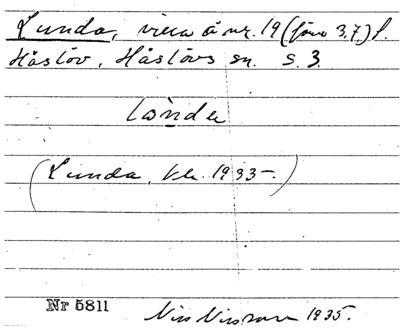 Lunda, vreta å nr. 19 (förr 3.7.) f.
Håslöv, Håslövs sn. S. 3.
lɷ̀nda
(Lunda, kk. 1933-.)
Nr 5811
Nils Nilsson 1935.